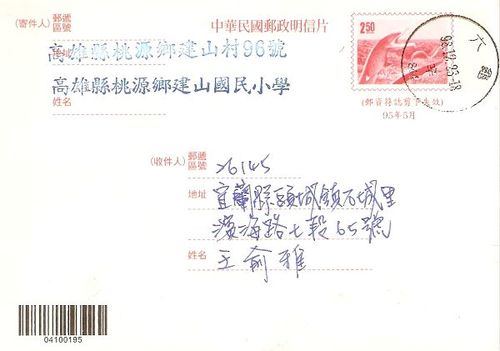 (寄件人) 郵遞區號
中華民國郵政明信片
2.50
高雄縣桃源鄉建山村96號
地址
高雄縣桃源鄉建山國民小學
姓名
(郵資符誌剪下失效)
95年5月
六龜
98.12.25.18
(收件人) 郵遞區號
26145
地址
宜蘭縣頭城鎮石城里
濱海路七段65號
姓名
王俞雅
04100195